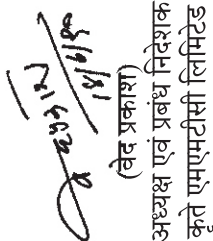 १४/६/९०
(वेद प्रकाश)
अध्यक्ष एवं प्रबंध निदेशक
कृते एमएमटीसी लिमिटेड